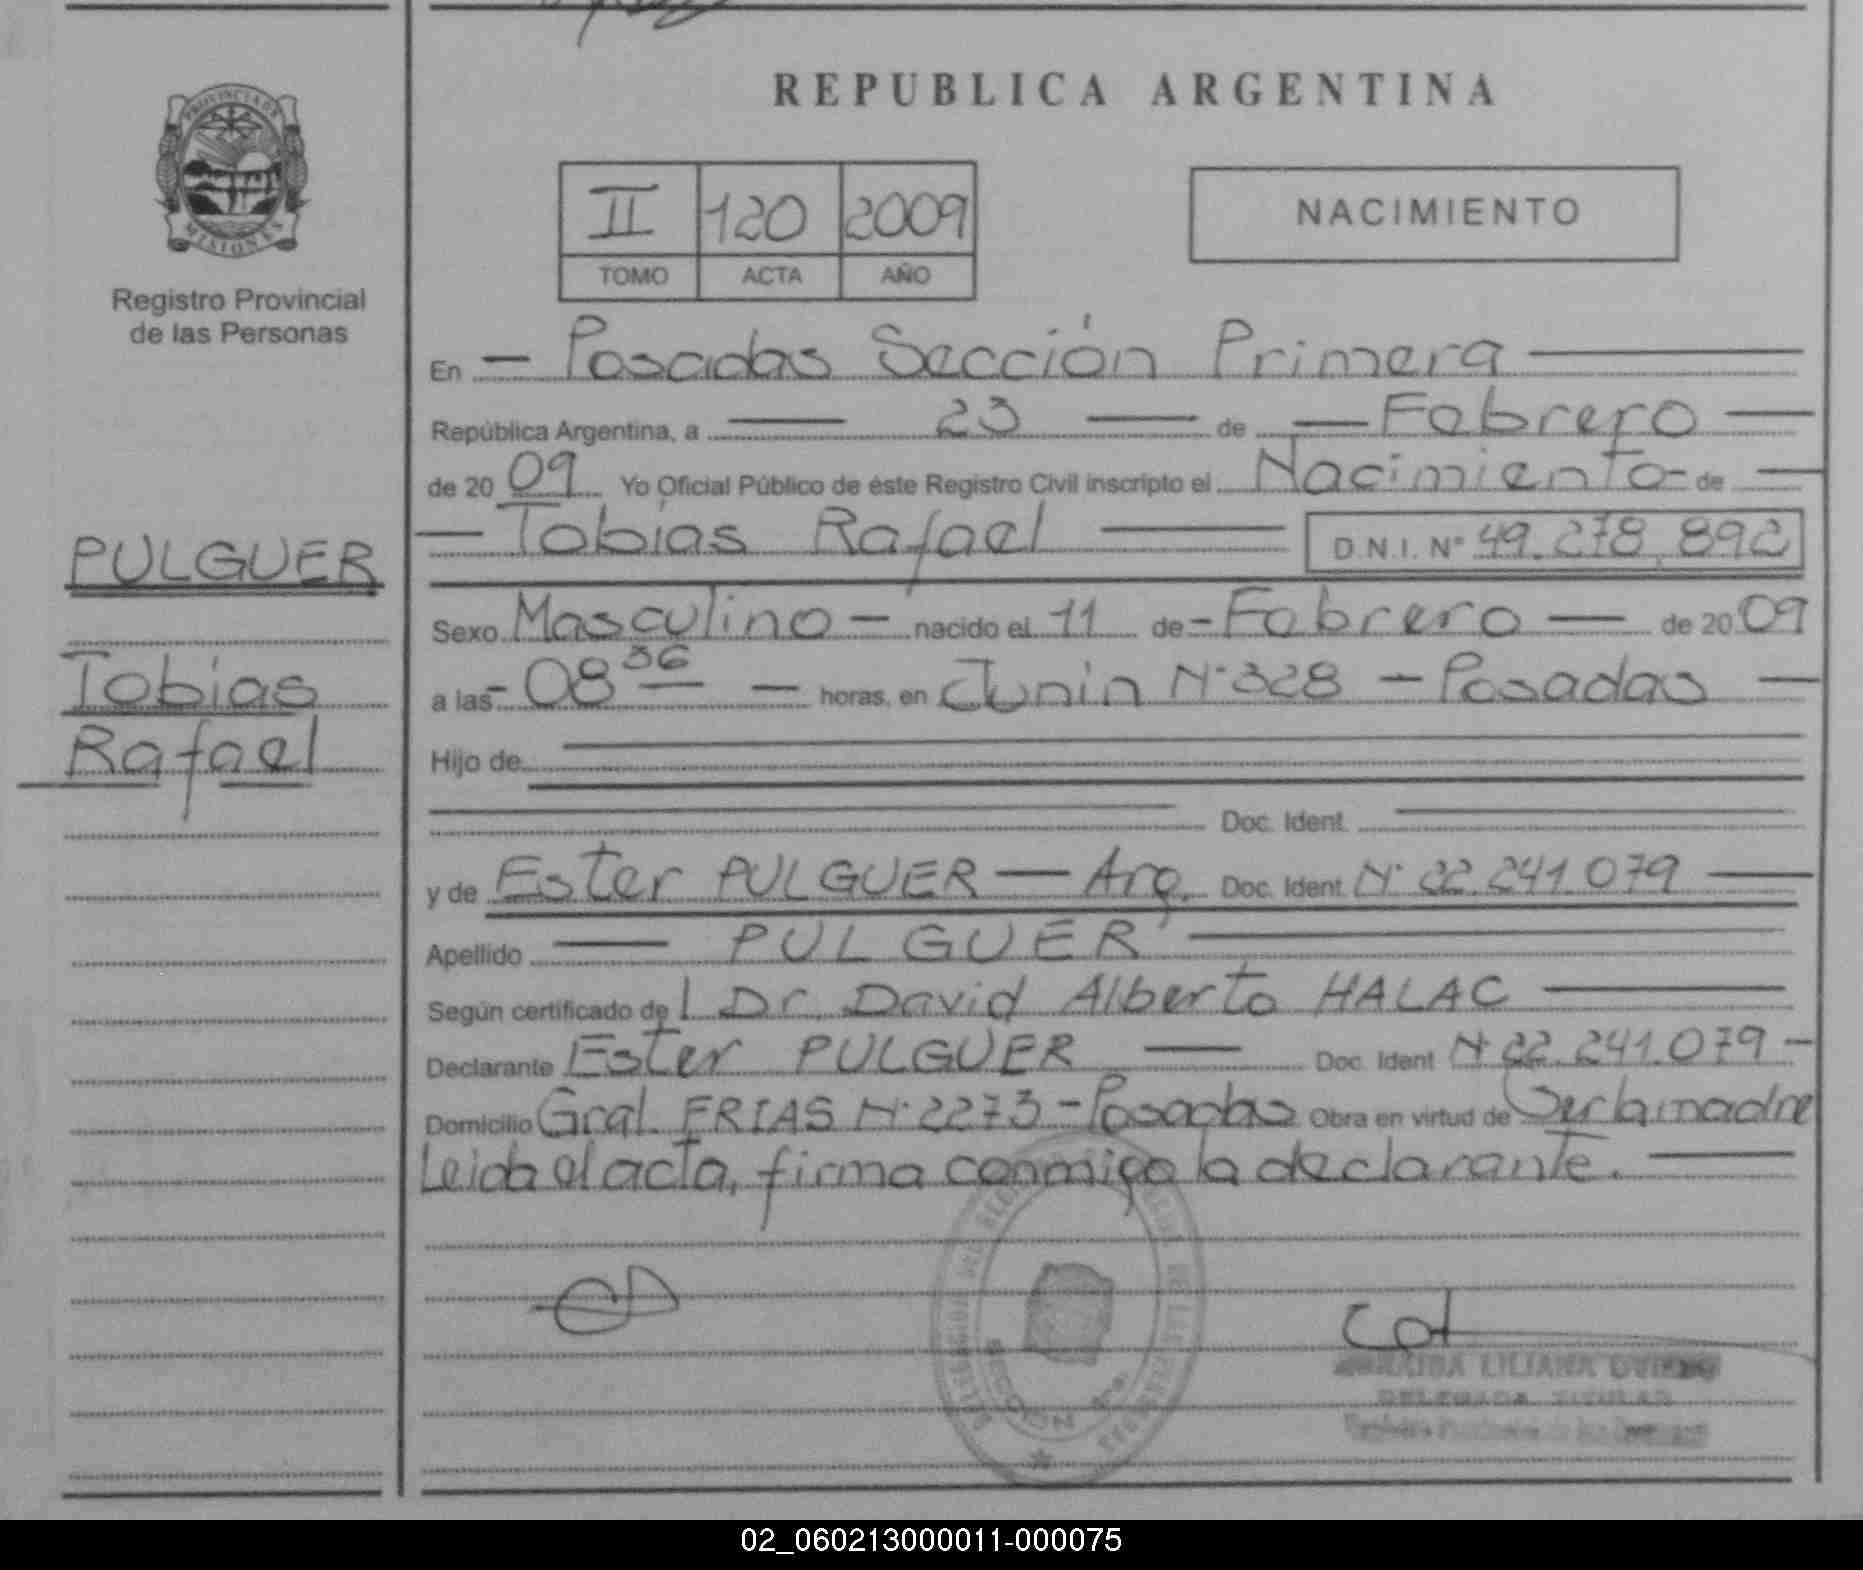 PROVINCIA DE
MISIONES
Registro Provincial
de las Personas
PULGUER
Tobias
Rafael
REPUBLICA ARGENTINA
II 120 2009
TOMO ACTA AÑO
NACIMIENTO
En Posadas Sección Primera
República Argentina, a 23 de Febrero
de 2009 Yo Oficial Público de éste Registro Civil inscripto el Nacimiento de
Tobias Rafael D.N.I. Nº 49.278.892
Sexo Masculino nacido el 11 de Febrero de 2009
a las 08 36 horas, en Junin Nº 328 - Posadas
Hijo de
Doc. Ident.
y de Ester PULGUER - Arg. Doc. Ident. Nº 22.241.079
Apellido PULGUER
Según certificado del Dr. David Alberto HALAC
Declarante Ester PULGUER Doc. Ident Nº 22.241.079
Domicilio Gral. FRIAS Nº 2273 - Posadas Obra en virtud de Ser la madre
Leida el acta, firma conmigo la declarante.
LILIANA
DELEGADA TITULAR
02_060213000011-000075